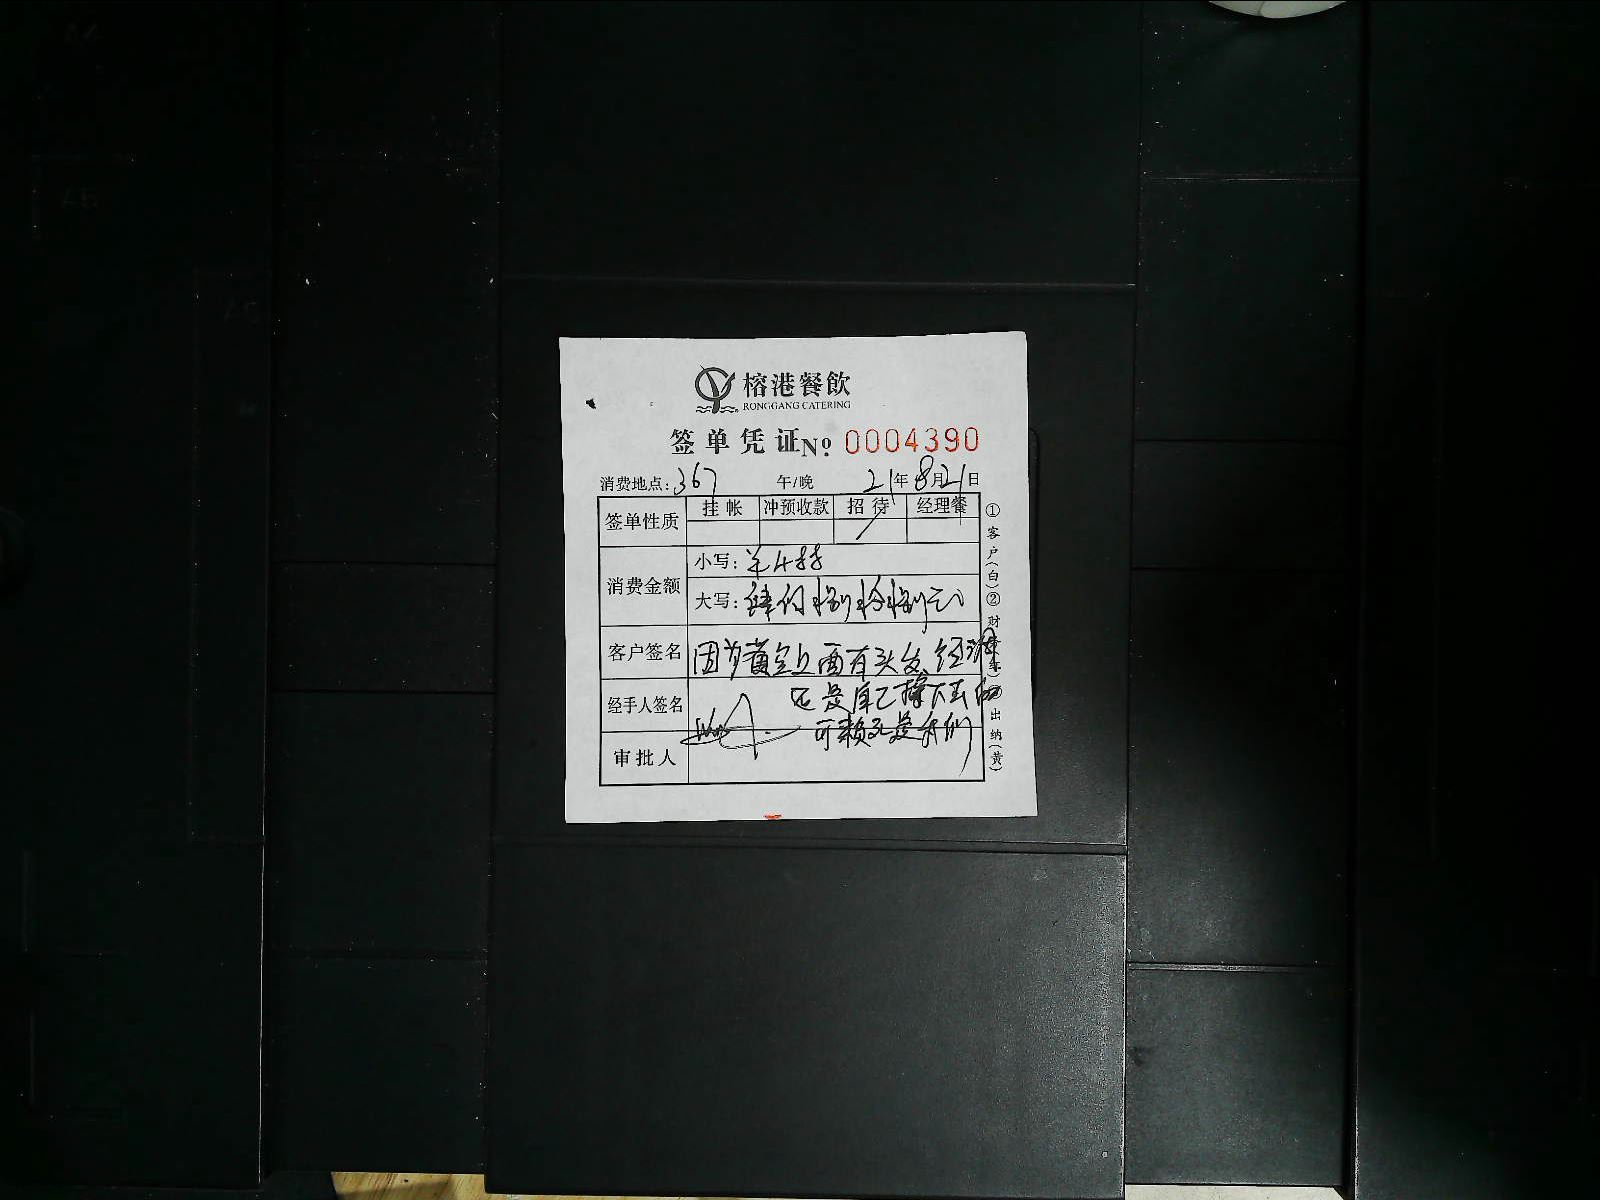 榕港餐飲
RONGGANG CATERING
签单凭证 No: 0004390
消费地点: 367 午/晚 21年8月21日
签单性质 挂帐 冲预收款 招待 经理餐
消费金额 小写:
大写:
客户签名 因为 上面有头发, 经
经手人签名 还是自己掉下去的
可赖不是我们
审批人
①客户(白)②财 出纳(黄)